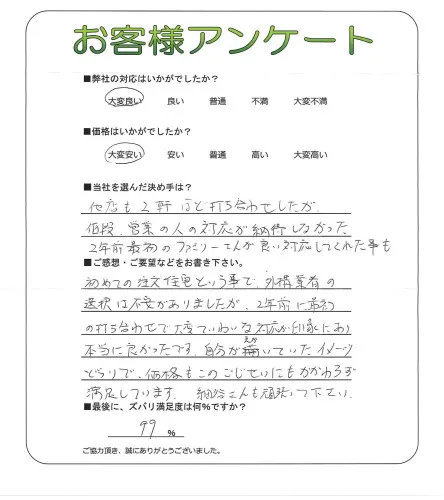 お客様アンケート
■弊社の対応はいかがでしたか？
大変良い 良い 普通 不満 大変不満
■価格はいかがでしたか？
大変安い 安い 普通 高い 大変高い
■当社を選んだ決め手は？
他店も2軒ほど打ち合わせしたが、
価格、営業の人の対応が納得しなかった
2年前最初のファミリーさんが良い対応してくれた事も
■ご感想・ご要望などをお書き下さい。
初めての注文住宅という事で、外構業者の
選択は不安がありましたが、2年前に最初
の打ち合わせで大変ていねいな対応が印象にあり
本当に良かったです。自分が描いていたイメージ
どうりで、価格もこのごじせいにもかかわらず
満足しています。 さんも頑張って下さい。
■最後に、ズバリ満足度は何％ですか？
99 ％
ご協力頂き、誠にありがとうございました。